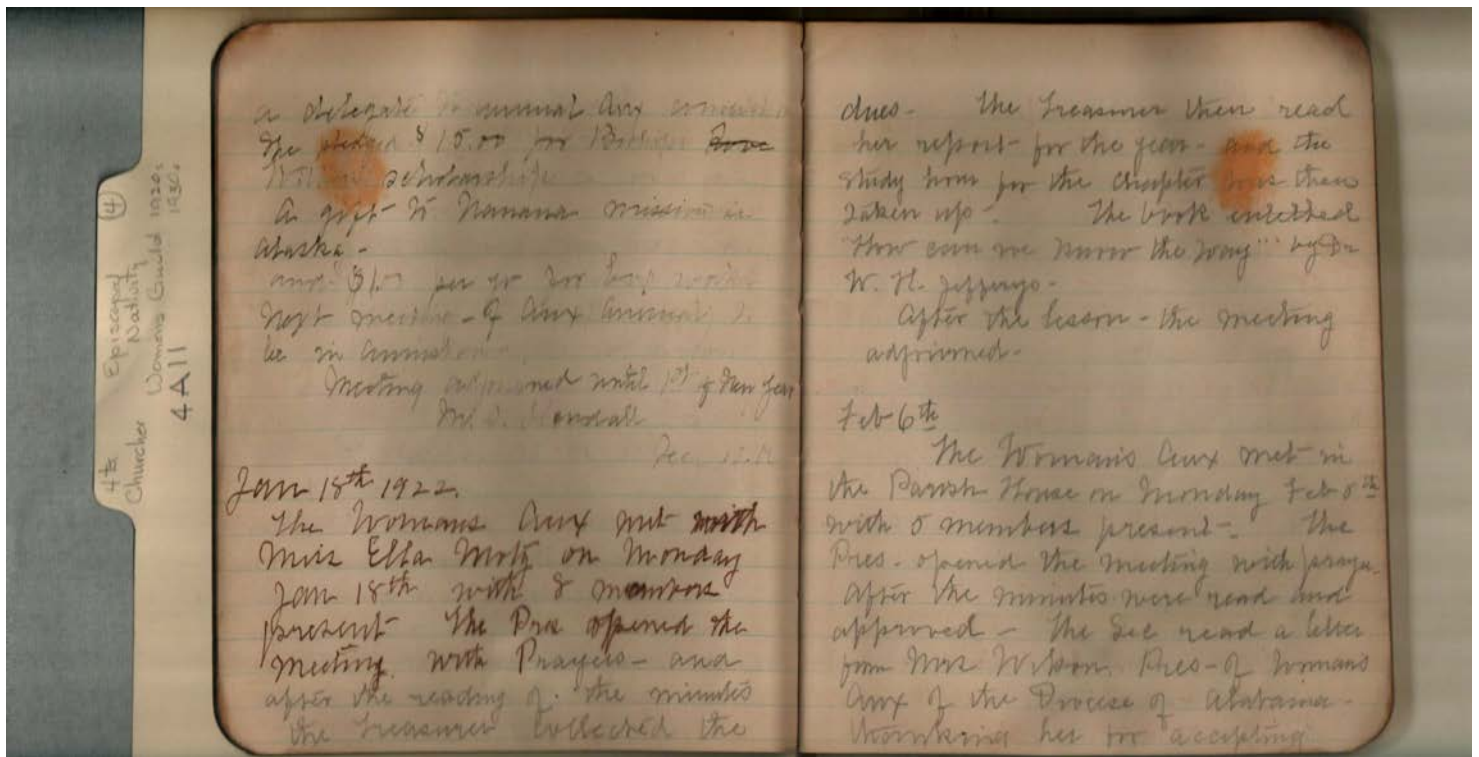 4ta Episcopal
Churches Nativity
Womens Guild 1920s
1930s
4A11
4
a delegate to annual Aux
She pledged $15.00 for
scholarship
A gift to Nanana mission in
Alaska -
and $1.00 per yr for
Next meeting - of Aux Annual to
be in Anniston
Meeting adjourned until 1st of New Year
Jan 18th 1922.
The Womans Aux met with
Miss Ella Motz on Monday
Jan 18th with 8 members
present - The Pres opened the
meeting with Prayers - and
after the reading of the minutes
the Treasurer collected the
dues - The Treasurer then read
her report - for the year - and the
study hour for the Chapter was then
taken up - The book intetled
"How can we know the way" by Dr
W. H. Jefferys -
After the lesson - the meeting
adjourned -
Feb 6th
The Womans Aux met - in
the Parish House on Monday Feb 6th
with 5 members present - The
Pres. opened the meeting with prayer.
After the minutes were read and
approved - The Sec read a letter
from Mrs Wilson. Pres - of Womans
Aux of the Diocese of Alabama -
thanking her for accepting